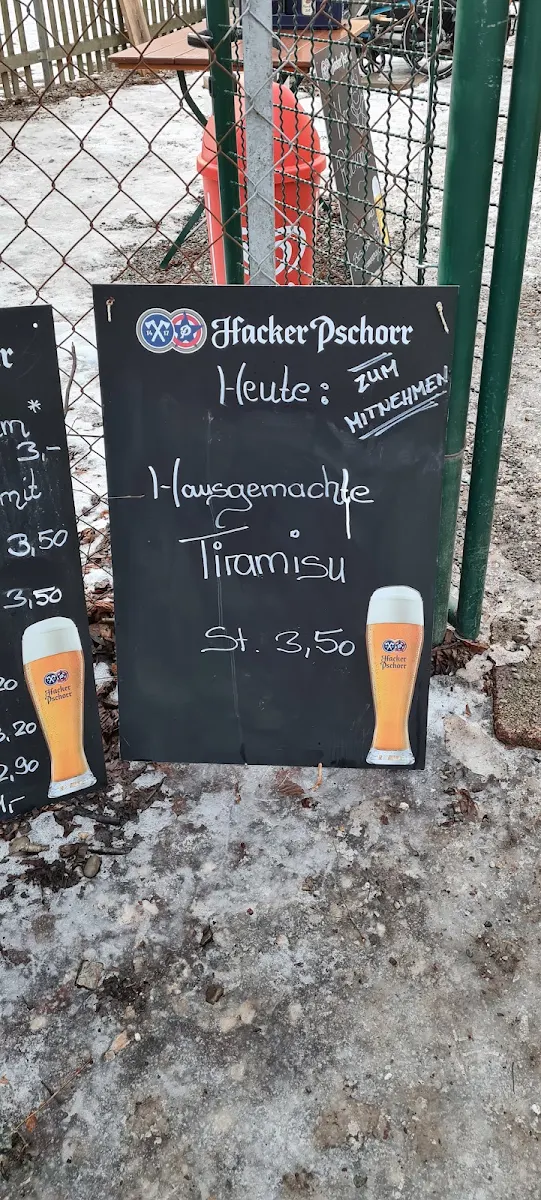 Hacker Pschorr
Heute:
ZUM
MITNEHMEN
Hausgemachte
Tiramisu
St. 3,50
Hacker
Pschorr
3,-
mit
3,50
3,50
3,20
2,90
Hacker
Pschorr